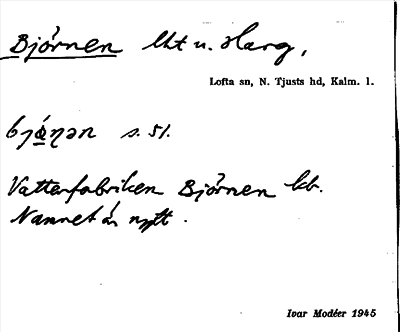 Björnen lht u. Harg,
Lofta sn, N. Tjusts hd, Kalm. l.
bjø̀ṇən s. 51.
Vattenfabriken Björnen kb.
Namnet är nytt.
Ivar Modéer 1945